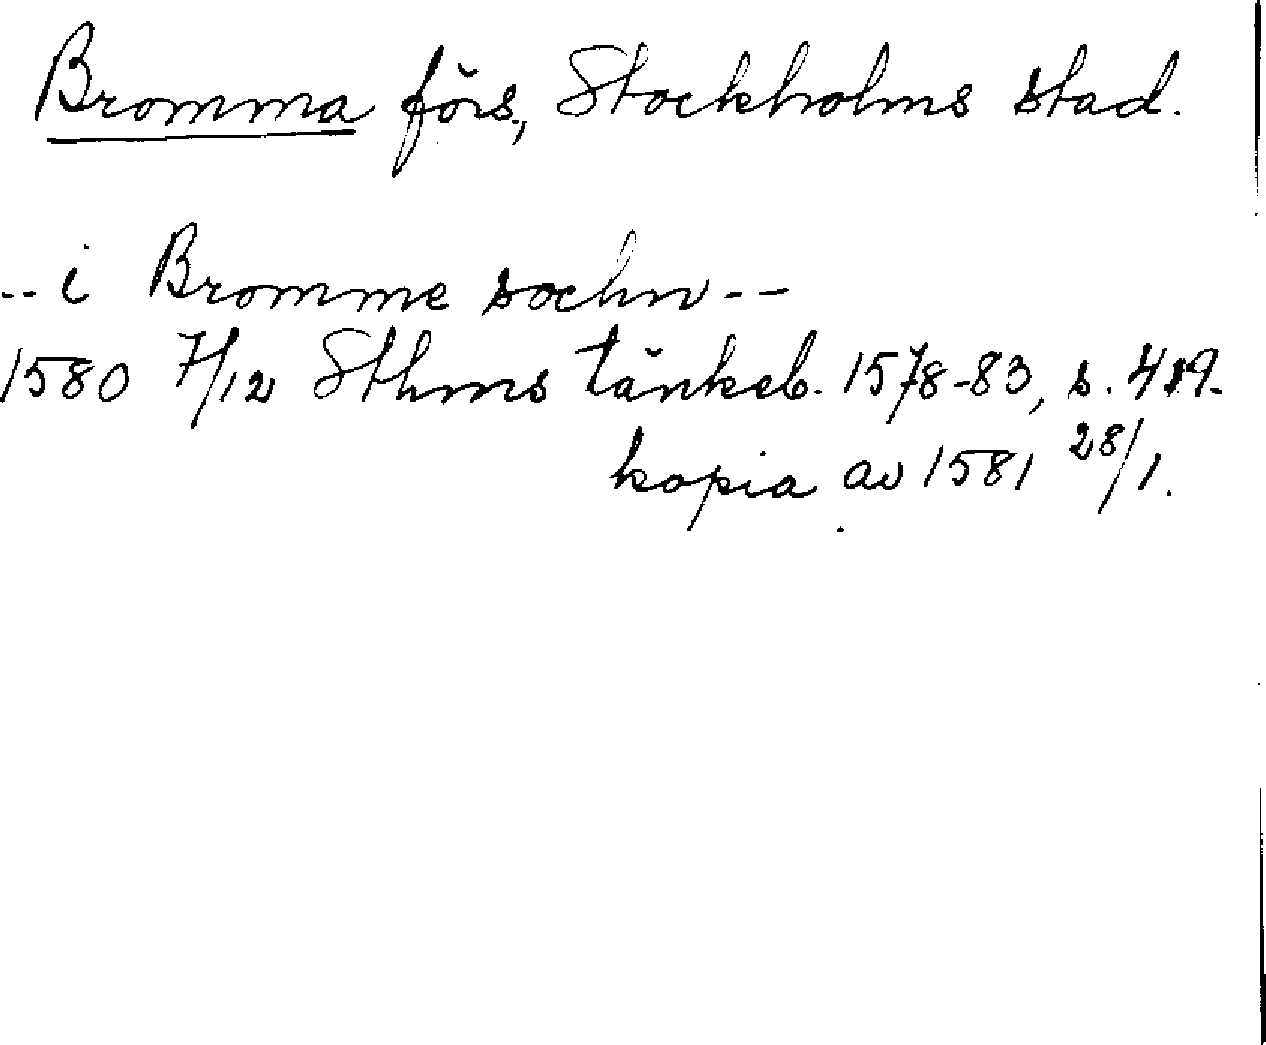 Bromma förs., Stockholms stad.
-- i Bromme sochn --
1580 7/12 Sthms tänkeb. 1578-83, s.
kopia av 1581 28/1.